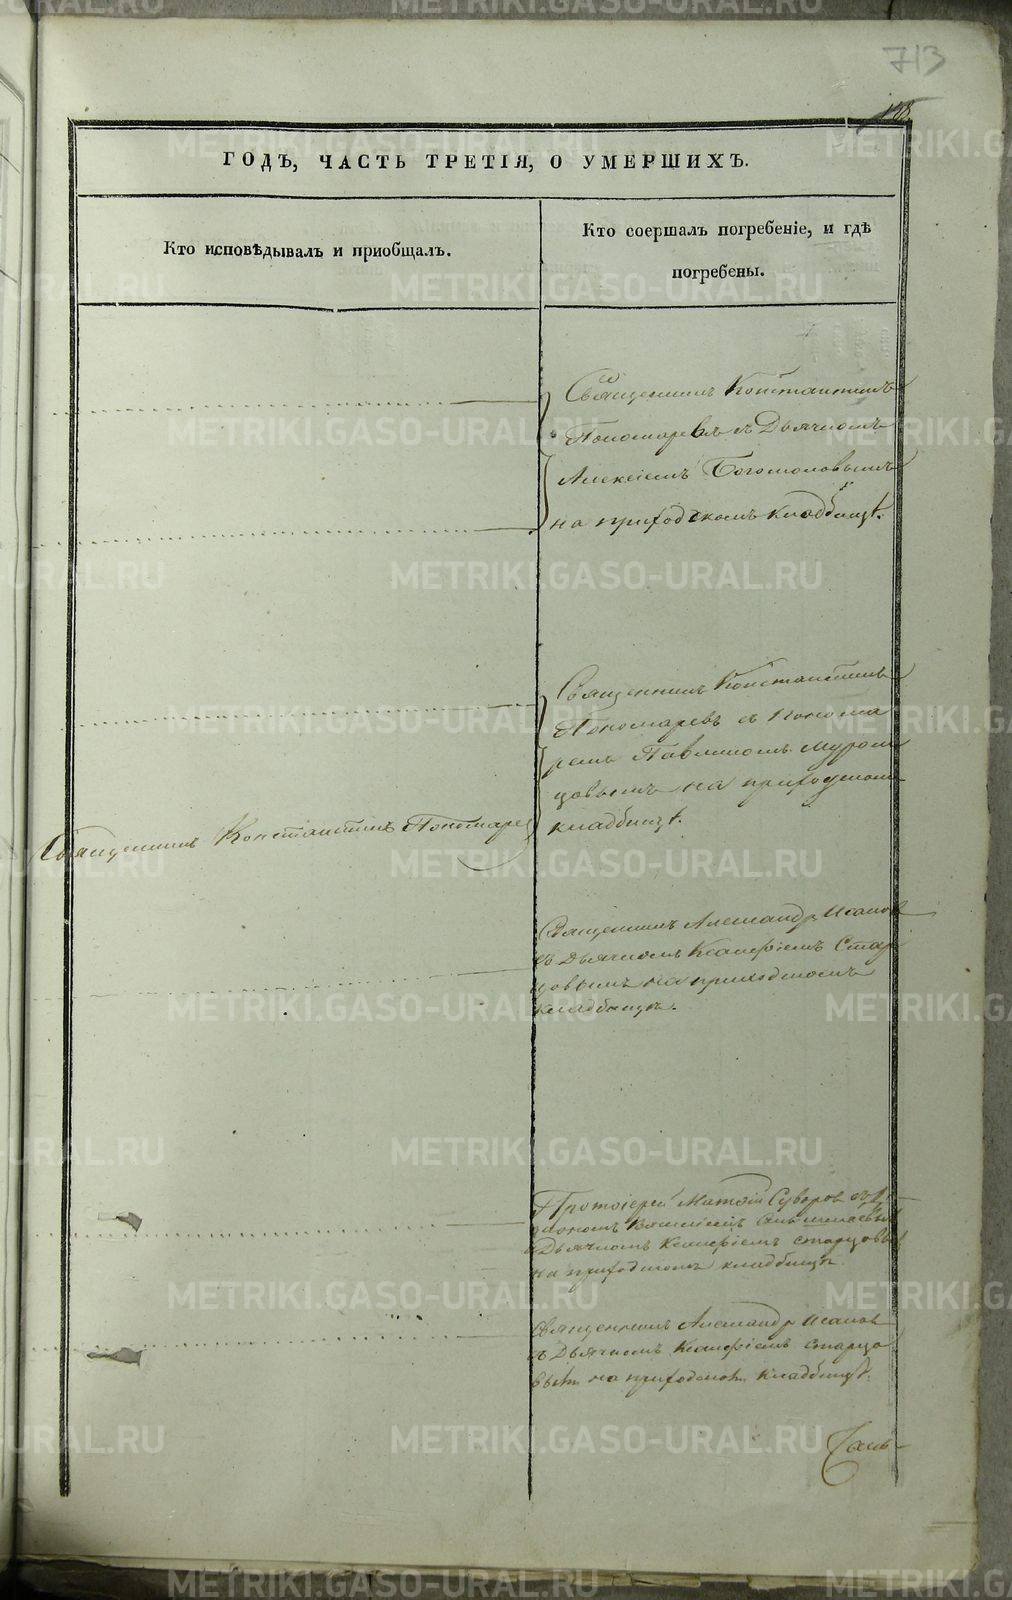 713
ГОДЪ, ЧАСТЬ ТРЕТІЯ, О УМЕРШИХЪ.
Кто исповѣдывалъ и приобщалъ.
Кто соершалъ погребеніе, и гдѣ
погребены.
Священникъ Константинъ
Пономаревъ съ Дьячкомъ
Алексіемъ Богомоловымъ
на приходскомъ кладбищѣ.
Священникъ Константинъ
Пономаревъ съ Понома
ремъ Павлиномъ Муром
цовымъ на приходскомъ
кладбищѣ.
Священникъ Константинъ Пономарев
Священникъ Александръ Исаков
съ Дьячкомъ Ксанфіемъ Стар
цовымъ на приходскомъ
кладбищѣ.
Протоіерей Матѳій Суворов съ
діакономъ Василіемъ
Дьячкомъ Ксанфіемъ старцовым
на приходскомъ кладбищѣ
Священникъ Александръ Исаков
съ Дьячкомъ Ксанфіемъ старцо
вым на приходском кладбищѣ.
METRIKI.GASO-URAL.RU